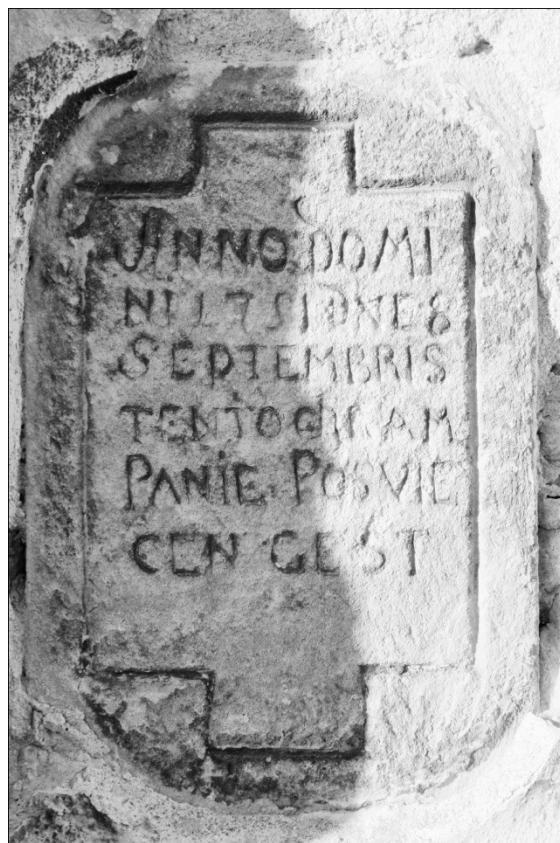 ANNO DOMI
NI 1751 DNE 8
SEPTEMBRIS
PANIE POSVIE
CEN GEST